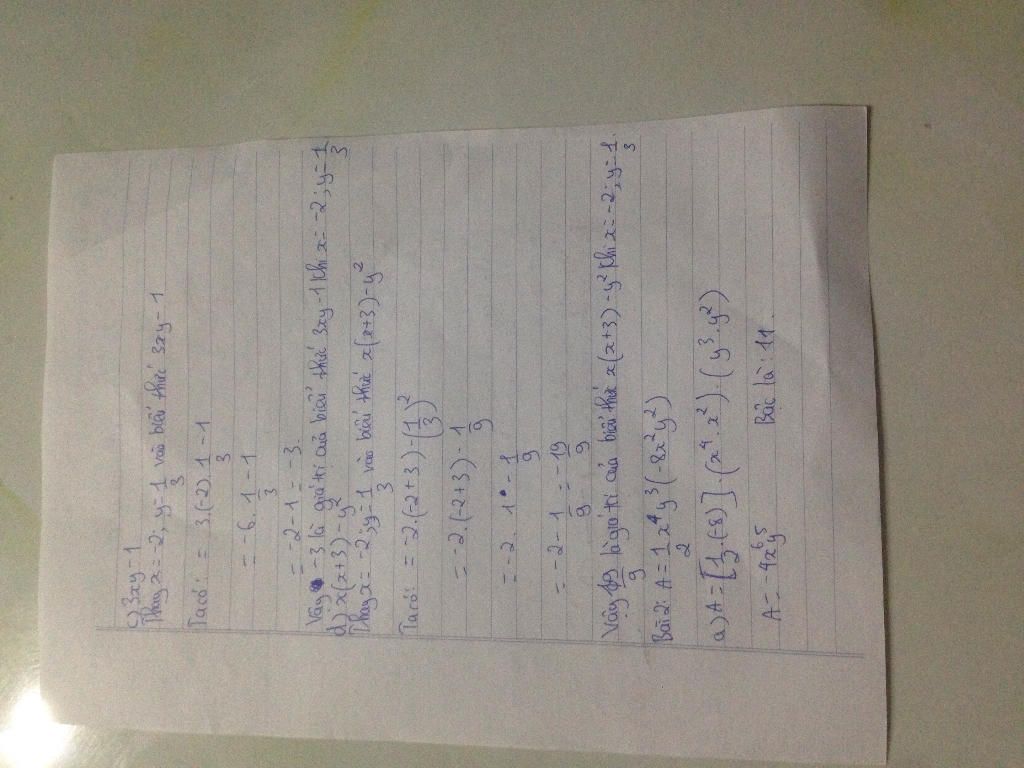 c) 3xy - 1
Thay x = -2; y = 1/3 vào biểu thức 3xy - 1
Ta có: = 3.(-2).1/3 - 1
= -6.1/3 - 1
= -2 - 1 = -3.
Vậy -3 là giá trị của biểu thức 3xy - 1 khi x = -2; y = 1/3
d) x(x+3) - y²
Thay x = -2; y = 1/3 vào biểu thức x(x+3) - y²
Ta có: = -2.(-2+3) - (1/3)²
= -2.(-2+3) - 1/9
= -2.1 - 1/9
= -2 - 1/9 = -19/9
Vậy 19/9 là giá trị của biểu thức x(x+3) - y² khi x = -2; y = 1/3.
Bài 2: A = 1/2 x⁴y³(-8x²y²)
a) A = [1/2.(-8)].(x⁴.x²).(y³.y²)
A = -4x⁶y⁵ Bậc là: 11.